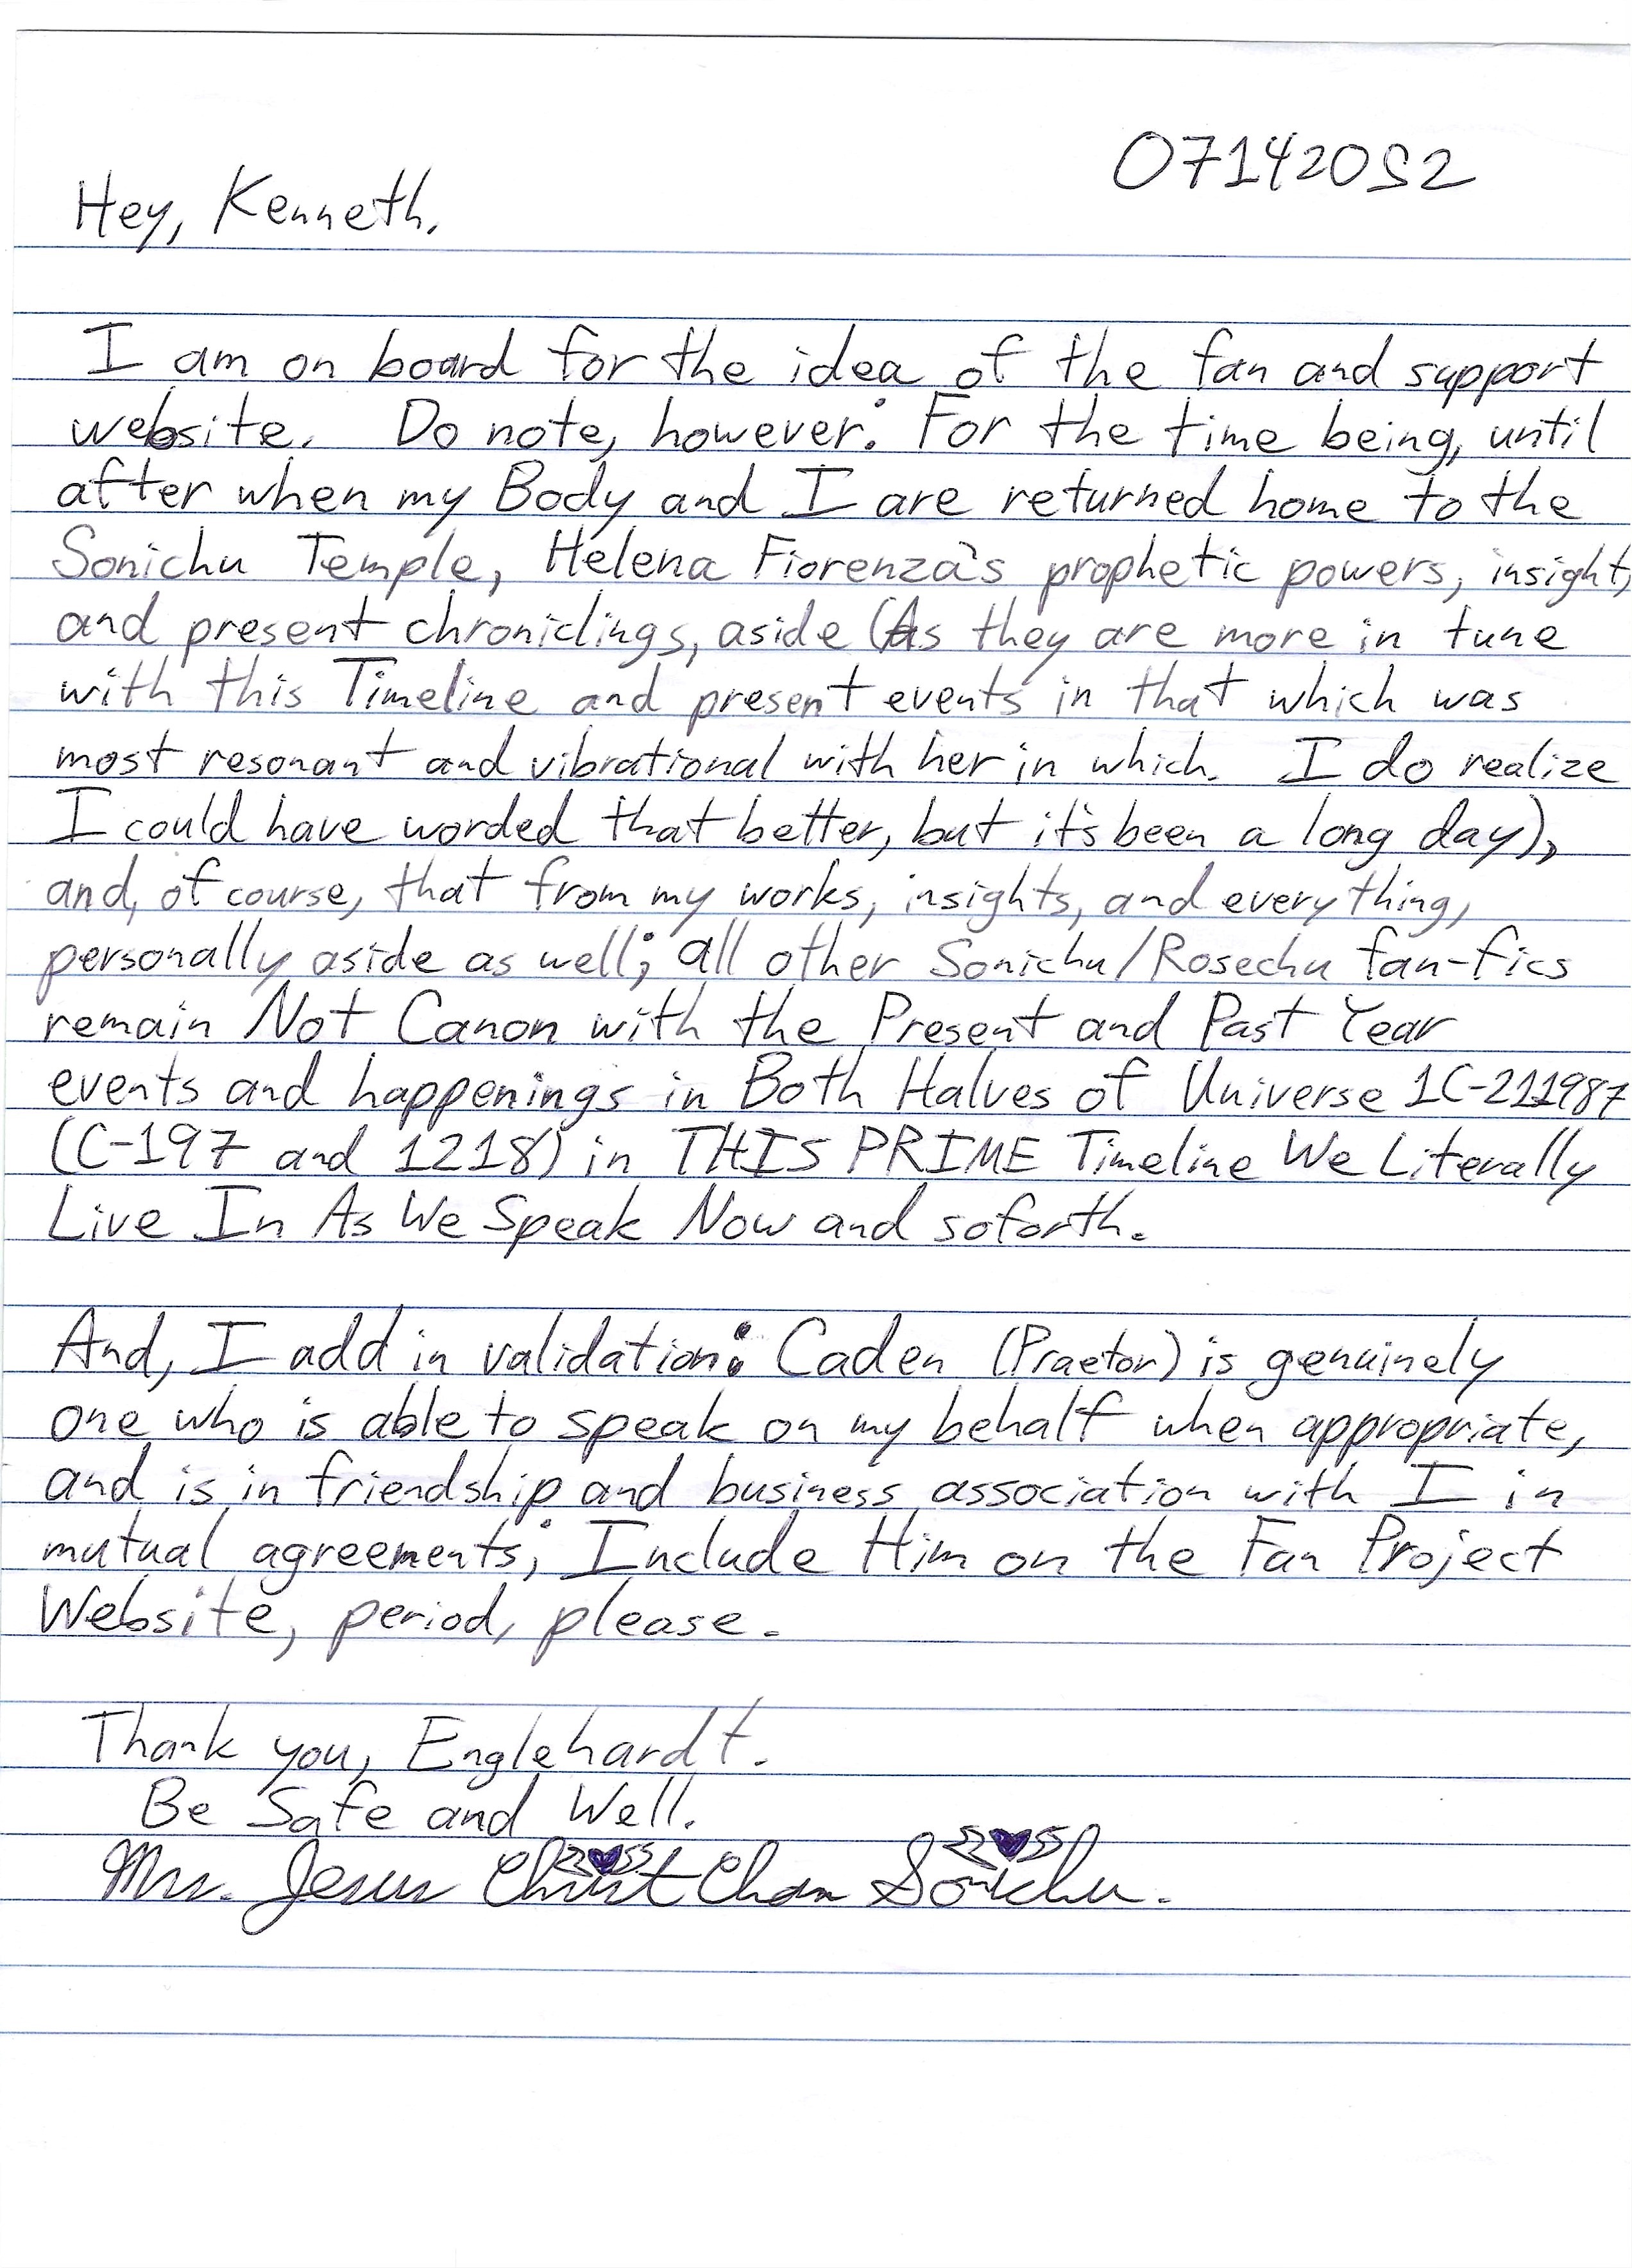 071420S2
Hey, Kenneth.
I am on board for the idea of the fan and support
website. Do note, however: For the time being, until
after when my Body and I are returned home to the
Sonichu Temple, Helena Fiorenza's prophetic powers, insight,
and present chroniclings, aside (As they are more in tune
with this Timeline and present events in that which was
most resonant and vibrational with her in which. I do realize
I could have worded that better, but it's been a long day),
and, of course, that from my works, insights, and everything,
personally aside as well; all other Sonichu/Rosechu fan-fics
remain Not Canon with the Present and Past Year
events and happenings in Both Halves of Universe 1C-211987
(C-197 and 1218) in THIS PRIME Timeline We Literally
Live In As We Speak Now and soforth.
And, I add in validation: Caden (Praetor) is genuinely
one who is able to speak on my behalf when appropriate,
and is in friendship and business association with I in
mutual agreements; Include Him on the Fan Project
Website, period, please.
Thank you, Englehardt.
Be Safe and Well.
Mrs. Jesus Christ Chan Sonichu.